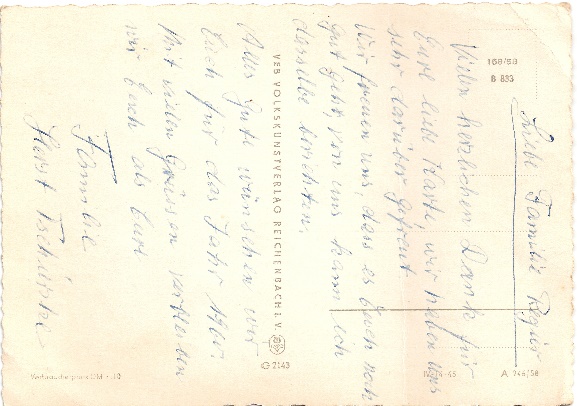 Liebe Familie Regier
Vielen herzlichen Dank für
Eure liebe Karte, wir haben uns
sehr darüber gefreut.
Wir freuen uns, dass es Euch noch
gut geht, von uns kann ich
dasselbe berichten.
Alles Gute wünschen wir
Euch für das Jahr 1960.
Mit vielen Grüssen verbleiben
wir Euch als Eure
Familie
Horst
VEB VOLKSKUNSTVERLAG REICHENBACH i. V.
G 7143
168/58
B 833
A 746/58
Verbraucherpreis DM -.10